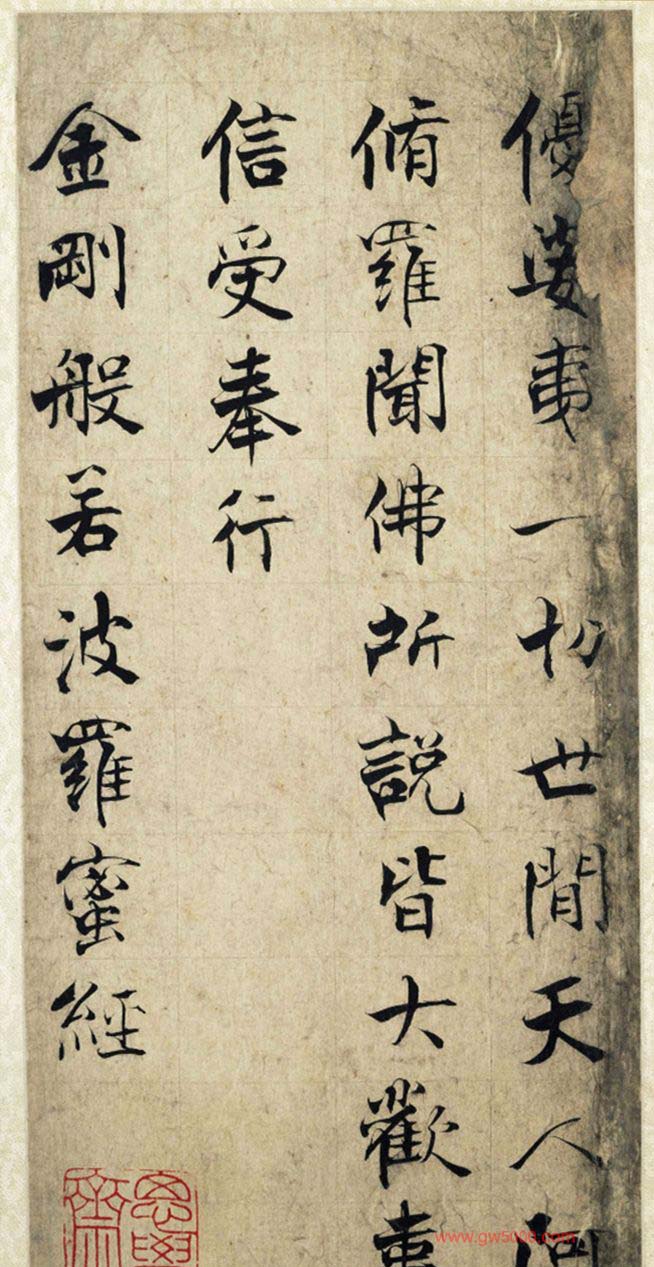 優婆夷一切世閒天人阿
脩羅聞佛所說皆大歡喜
信受奉行
金剛般若波羅蜜經
www.gw5000.com